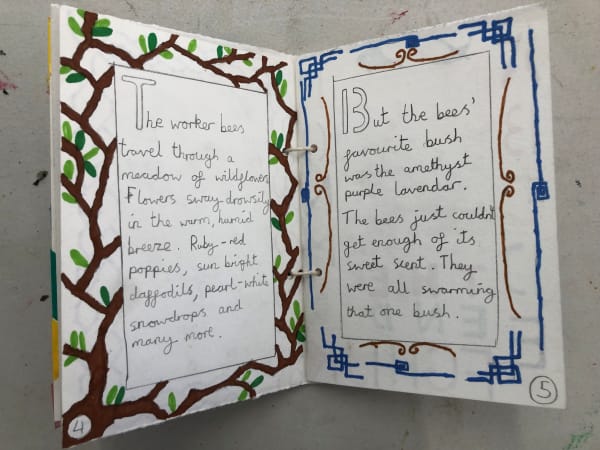 The worker bees
travel through a
meadow of wildflowers
Flowers sway drowsily
in the warm, humid
breeze. Ruby-red
poppies, sun bright
daffodils, pearl-white
snowdrops and
many more.
4
But the bees'
favourite bush
was the amethyst
purple lavendar.
The bees just couldn't
get enough of its
sweet scent. They
were all swarming
that one bush.
5